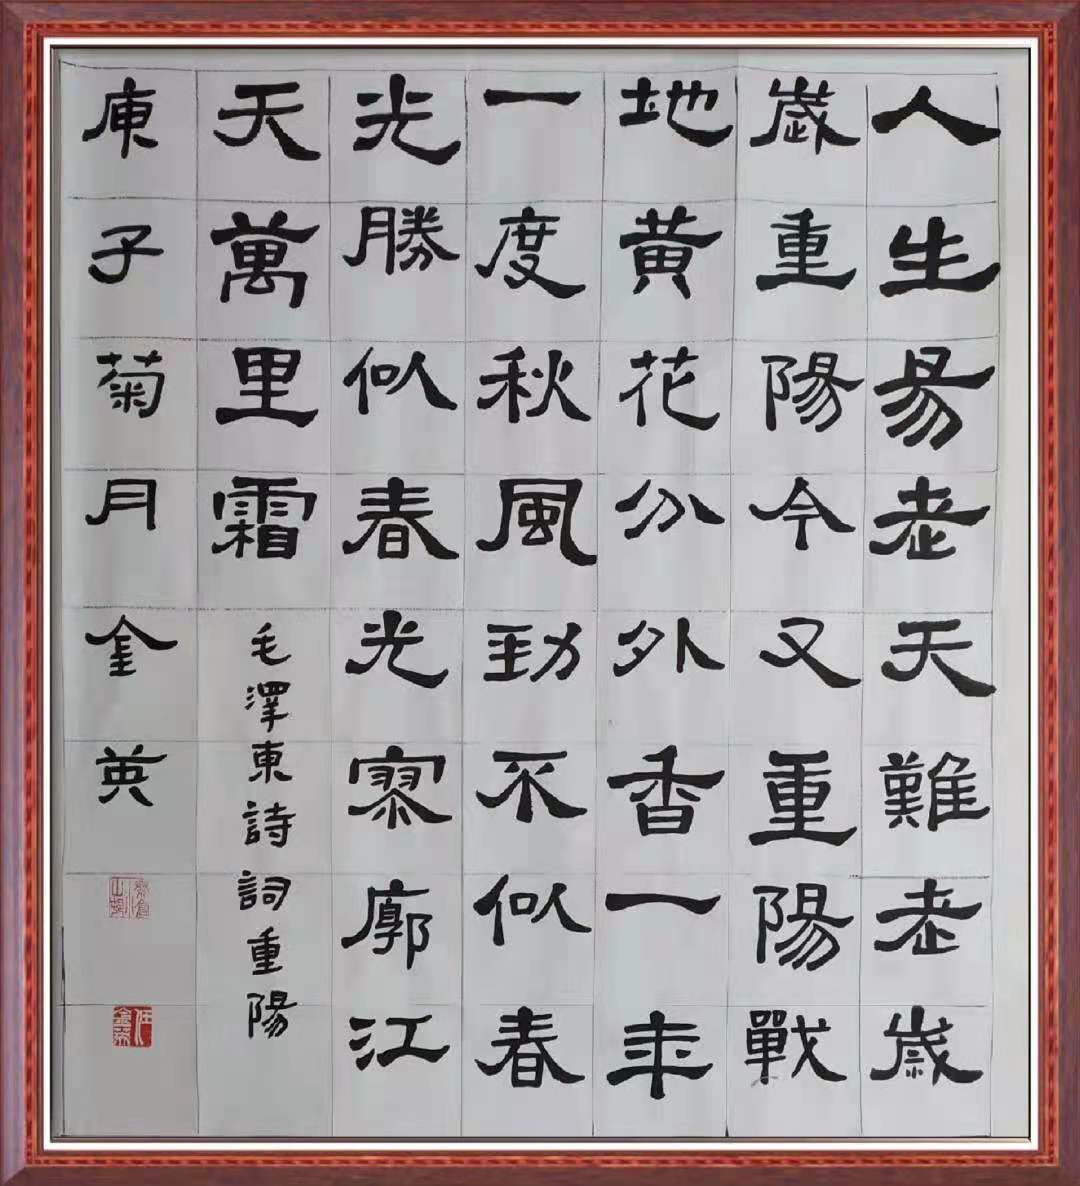 人生易老天難老歲
歲重陽今又重陽戰
地黃花分外香一年
一度秋風勁不似春
光勝似春光寥廓江
天萬里霜
毛澤東詩詞重陽
庚子菊月金英
任金英